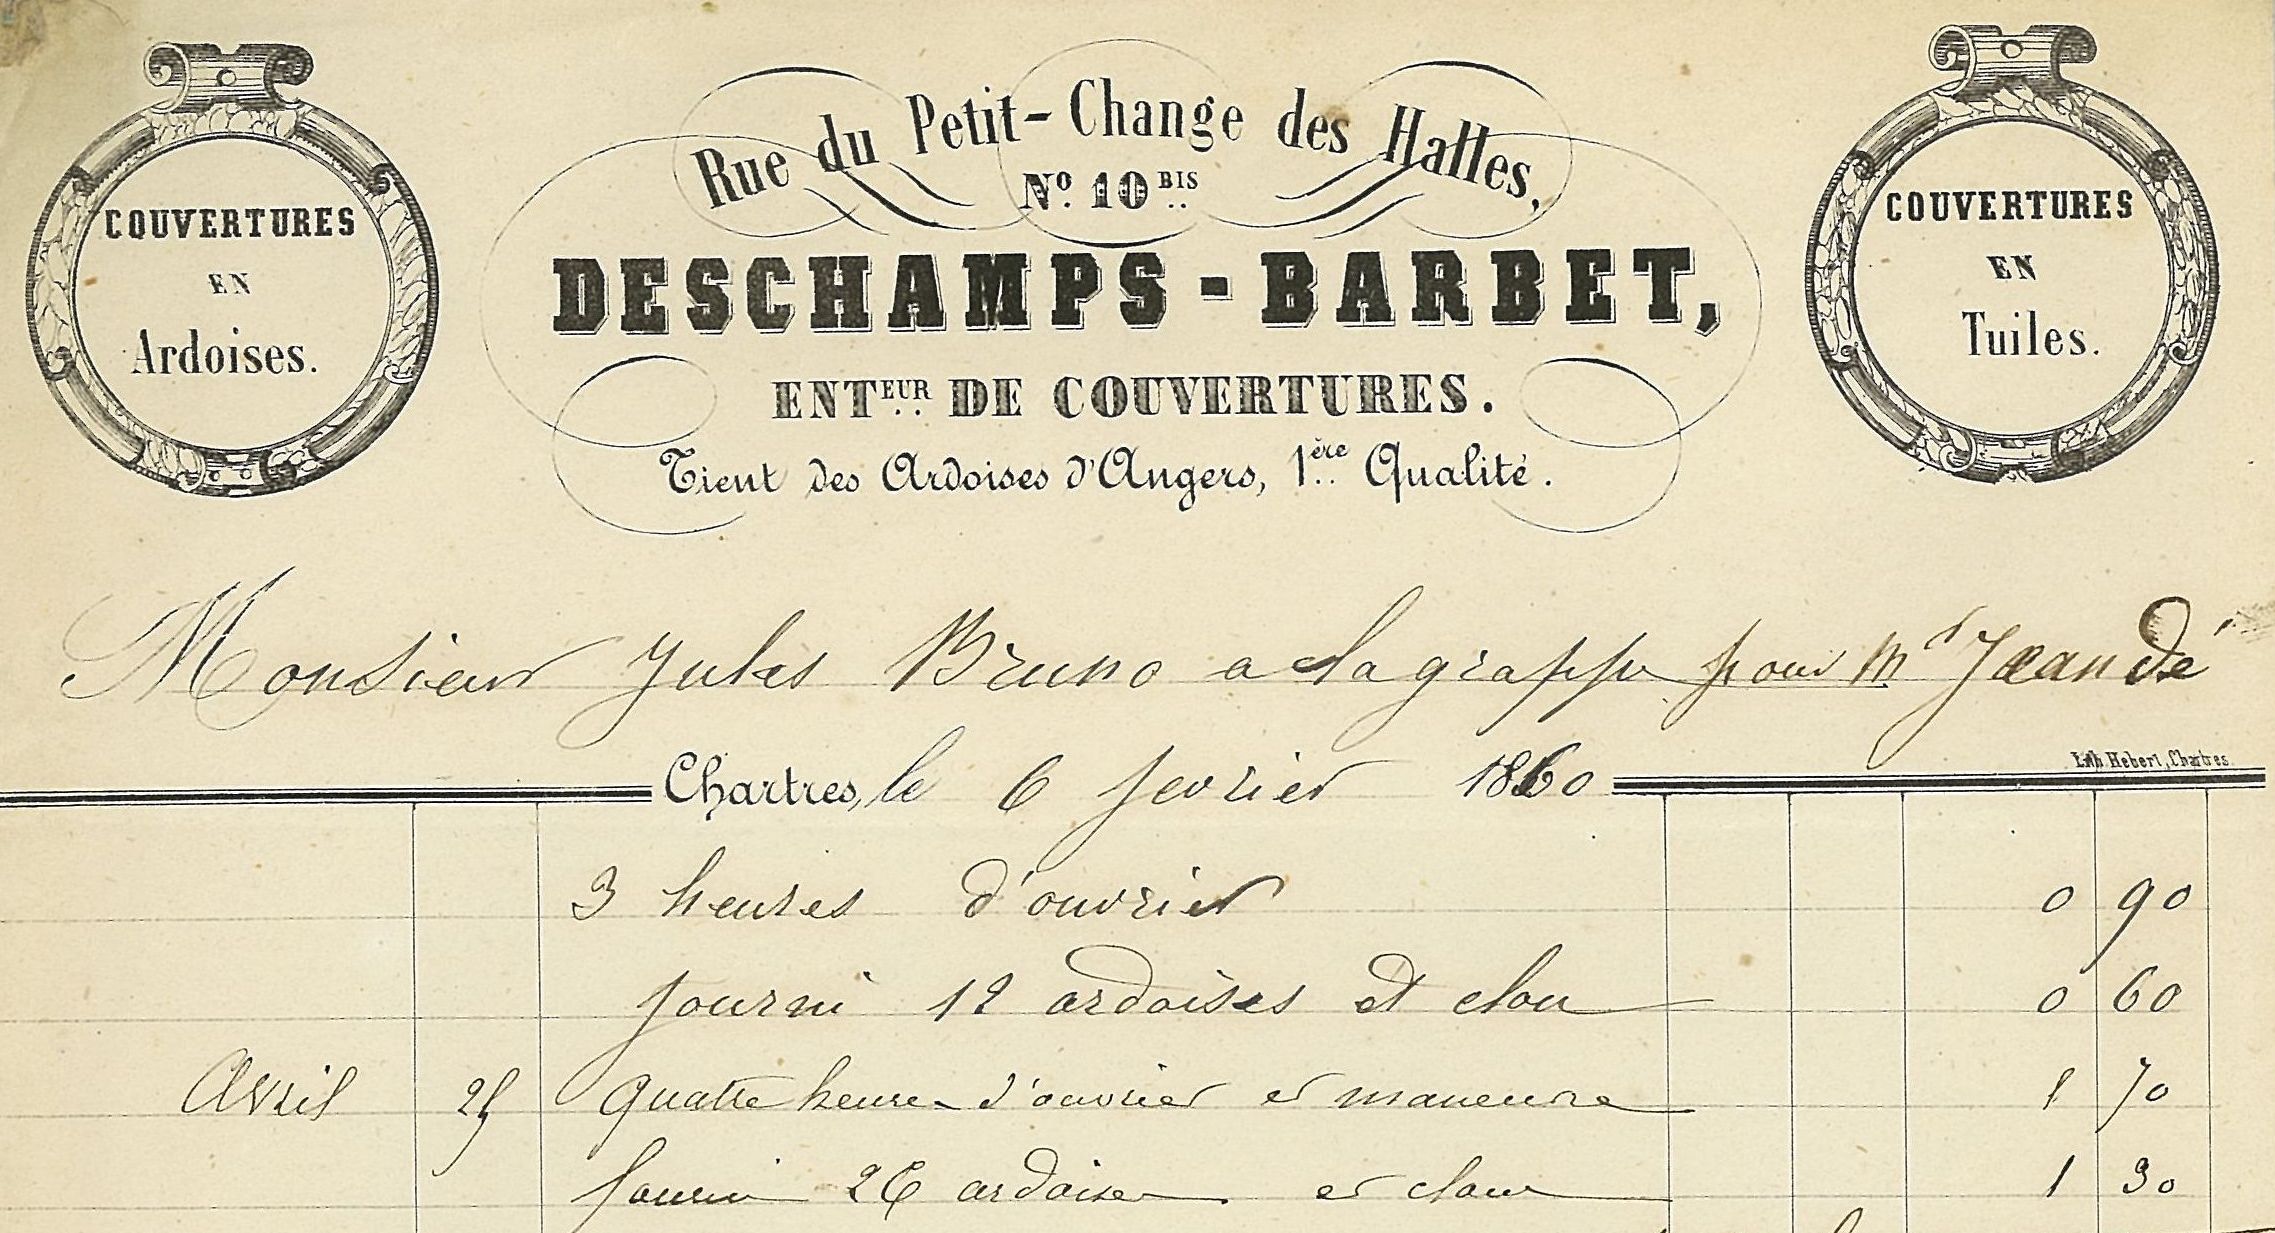 Rue du Petit-Change des Halles,
No. 10 BIS
COUVERTURES
EN
Ardoises.
DESCHAMPS-BARBET,
ENTEUR DE COUVERTURES.
Tient des Ardoises d'Angers, 1ère Qualité.
COUVERTURES
EN
Tuiles.
Monsieur Jules Bruno a la grappe pour Mr Jeandé
Lith Hebert, Chartres
Chartres, le 6 fevrier 1860
3 heures d'ouvrier 0 90
fourni 12 ardoises et clou 0 60
Avril 25 quatre heure d'ouvrier et maneuvre 1 70
fourni 26 ardoise et clou 1 30